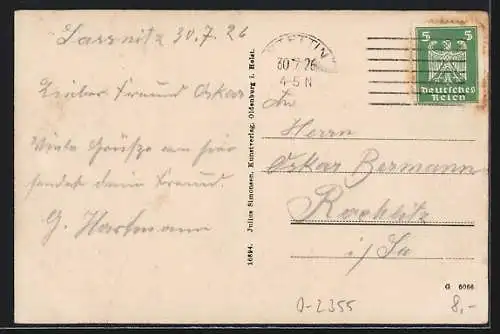 Sassnitz 30.7.26
Lieber Freund Oskar
Viele Grüße von hier
sendet dein Freund.
G. Hartmann
16894. Julius Simonsen, Kunstverlag, Oldenburg i. Holst.
STETTIN
30.7.26
4-5 N
5 5
Deutsches
Reich
An
Herrn
Oskar Bermann
Rochlitz
i/Sa
G 6066
0-2355
8,-